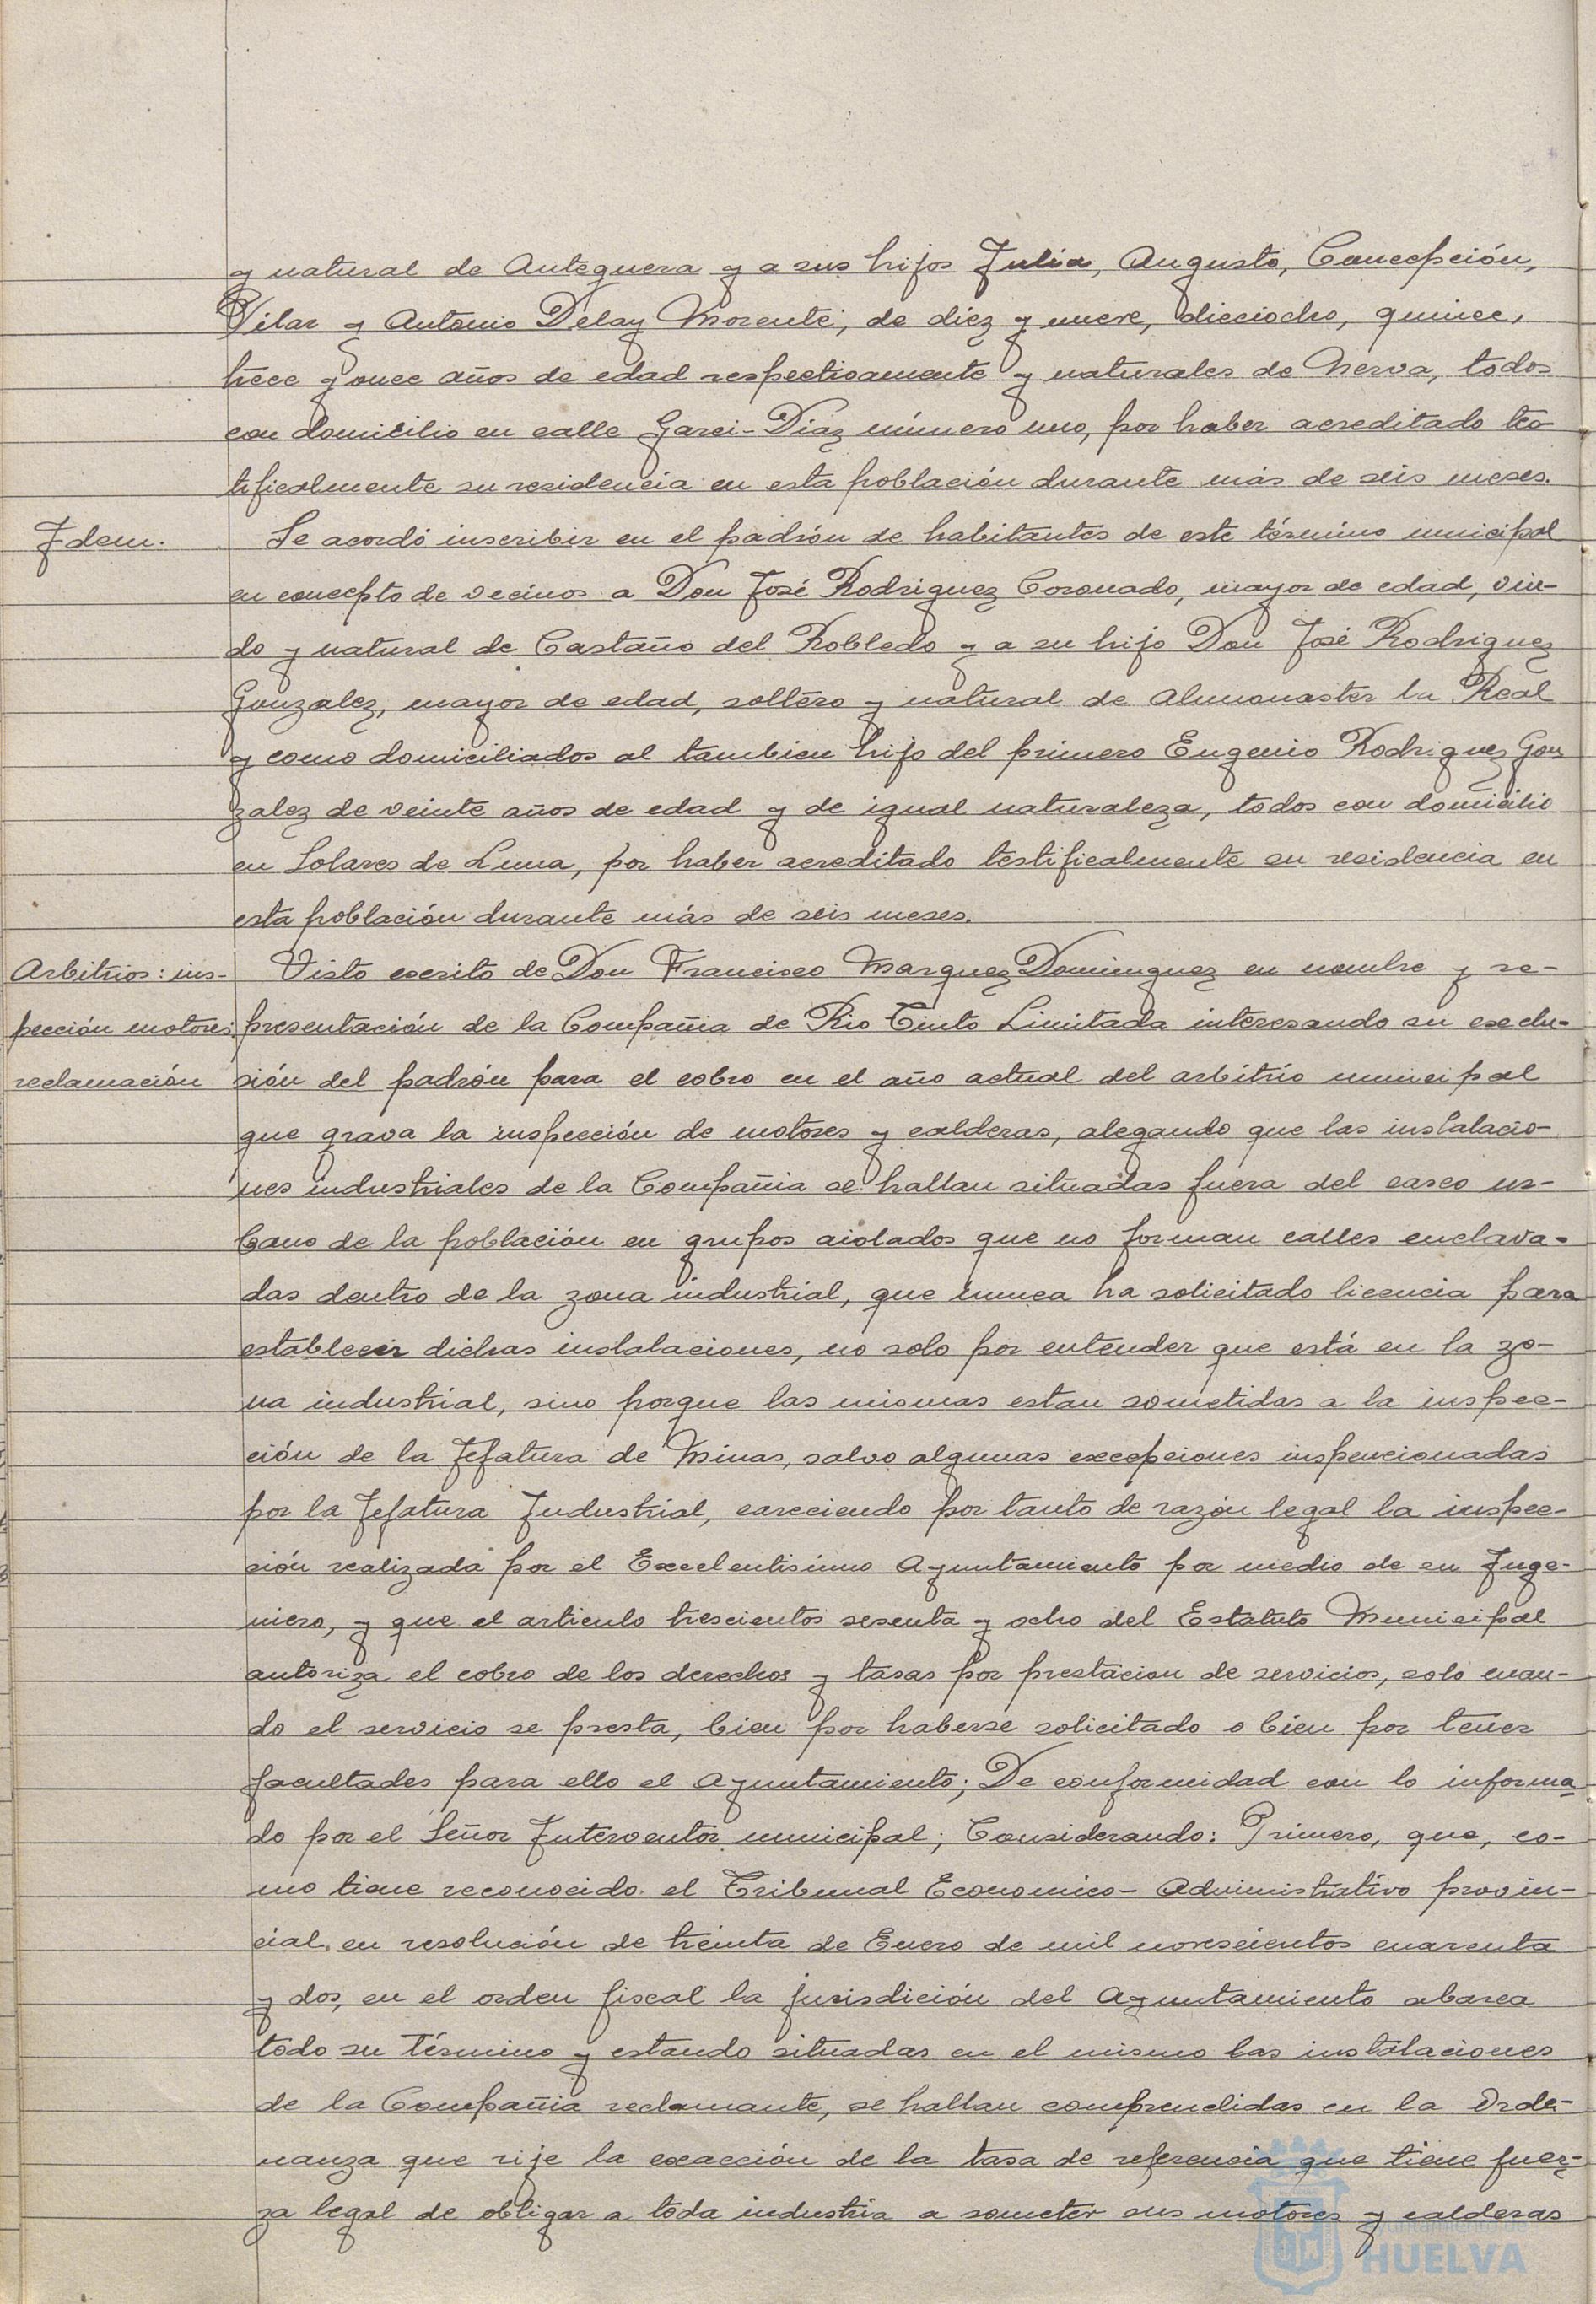 y natural de Antequera y a sus hijos Julia, Augusto, Concepción,
Pilar y Antonio Delay Morente, de diez y nueve, dieciocho, quince,
trece y once años de edad respectivamente y naturales de Nerva, todos
con domicilio en calle Garci-Diaz número uno, por haber acreditado tes-
tificalmente su residencia en esta población durante más de seis meses.
Idem.
Se acordó inscribir en el padrón de habitantes de este término municipal
en concepto de vecinos a Don José Rodriguez Coronado, mayor de edad, viu-
do y natural de Castaño del Robledo y a su hijo Don José Rodriguez
Gonzalez, mayor de edad, soltero y natural de Almonaster la Real
y como domiciliados al tambien hijo del primero Eugenio Rodriguez Gon
zalez de veinte años de edad y de igual naturaleza, todos con domicilio
en Solares de Luna, por haber acreditado testificalmente su residencia en
esta población durante más de seis meses.
Arbitrios: ins-
pección motores.
reclamación
Visto escrito de Don Francisco Marquez Dominguez en nombre y re-
presentación de la Compañia de Rio Tinto Limitada interesando su exclu-
sión del padrón para el cobro en el año actual del arbitrio municipal
que grava la inspección de motores y calderas, alegando que las instalacio-
nes industriales de la Compañia se hallan situadas fuera del casco ur-
bano de la población en grupos aislados que no forman calles enclava-
das dentro de la zona industrial, que nunca ha solicitado licencia para
establecer dichas instalaciones, no solo por entender que está en la zo-
na industrial, sino porque las mismas estan sometidas a la inspec-
ción de la Jefatura de Minas, salvo algunas excepciones inspencionadas
por la Jefatura Industrial, careciendo por tanto de razón legal la inspec-
ción realizada por el Excelentisimo Ayuntamiento por medio de su Inge-
niero, y que el articulo trescientos sesenta y ocho del Estatuto Municipal
autoriza el cobro de los derechos y tasas por prestacion de servicios, solo cuan-
do el servicio se presta, bien por haberse solicitado o bien por tener
facultades para ello el Ayuntamiento; De conformidad con lo informa
do por el Señor Interventor municipal; Considerando: Primero, que, co-
mo tiene reconocido el Tribunal Economico-Administrativo provin-
cial, en resolución de treinta de Enero de mil novescientos cuarenta
y dos, en el orden fiscal la jurisdición del Ayuntamiento abarca
todo su Término y estando situadas en el mismo las instalaciones
de la Compañia reclamante, se hallan comprendidas en la Orde-
nanza que rije la exacción de la tasa de referencia que tiene fuer-
za legal de obligar a toda industria a someter sus motores y calderas
Ayuntamiento de
HUELVA